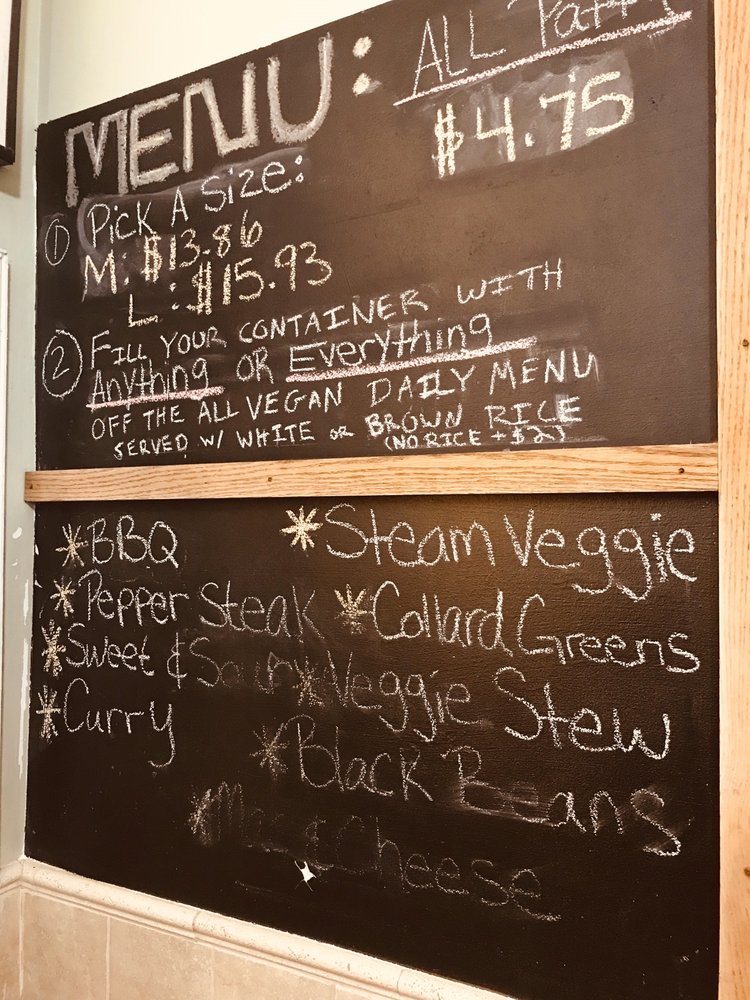 MENU:
ALL
$4.75
① Pick A Size:
M: $13.86
L: $15.93
② FILL YOUR CONTAINER WITH
Anything OR Everything
OFF THE ALL VEGAN DAILY MENU
SERVED W/ WHITE OR BROWN RICE
(NO RICE + $2)
*BBQ
*Pepper Steak
*Sweet & Sour
*Curry
*Steam Veggie
*Collard Greens
*Veggie Stew
*Black Beans
*Mac & Cheese